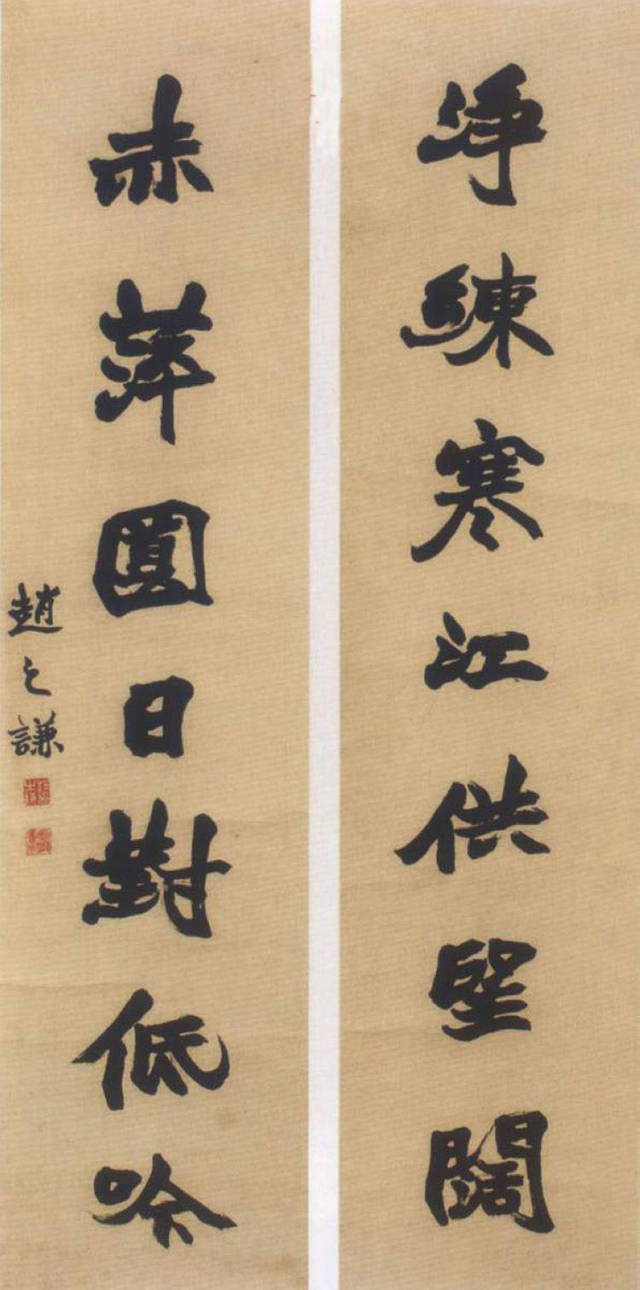 淨練寒江供望闊
赤萍圓日對低吟
趙之謙